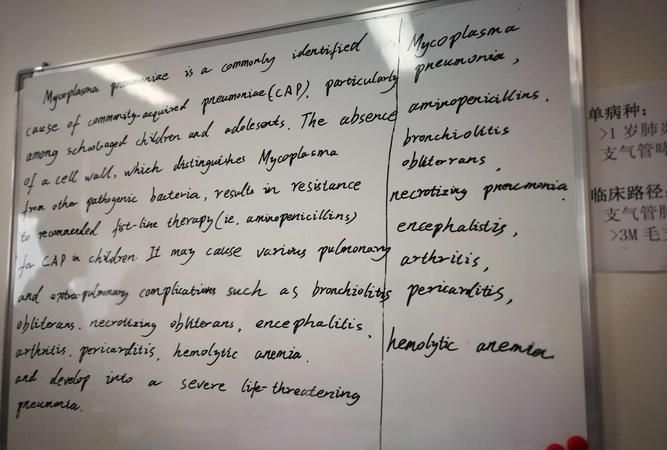 Mycoplasma pneumoniae is a commonly identified
cause of community-acquired pneumoniae (CAP), particularly
among school-aged children and adolesents. The absence
of a cell wall, which distinguishes Mycoplasma
from other pathogenic bacteria, results in resistance
to recommended fist-line therapy (ie. aminopenicillins)
for CAP in children. It may cause various pulmonary
and extra-pulmonary complications such as bronchiolitis
obliterans, necrotizing obliterans, encephalitis,
arthritis, pericarditis, hemolytic anemia.
and develop into a severe life-threatening
pneumonia.
Mycoplasma
pneumonia,
aminopenicillins.
bronchiolitis
obliterrans,
necrotizing pneucmonia.
encephalistis,
arthritis,
pericarditis,
hemolytic anemia
单病种：
>1岁肺炎
支气管哮
临床路径
支气管肺
>3M 毛支